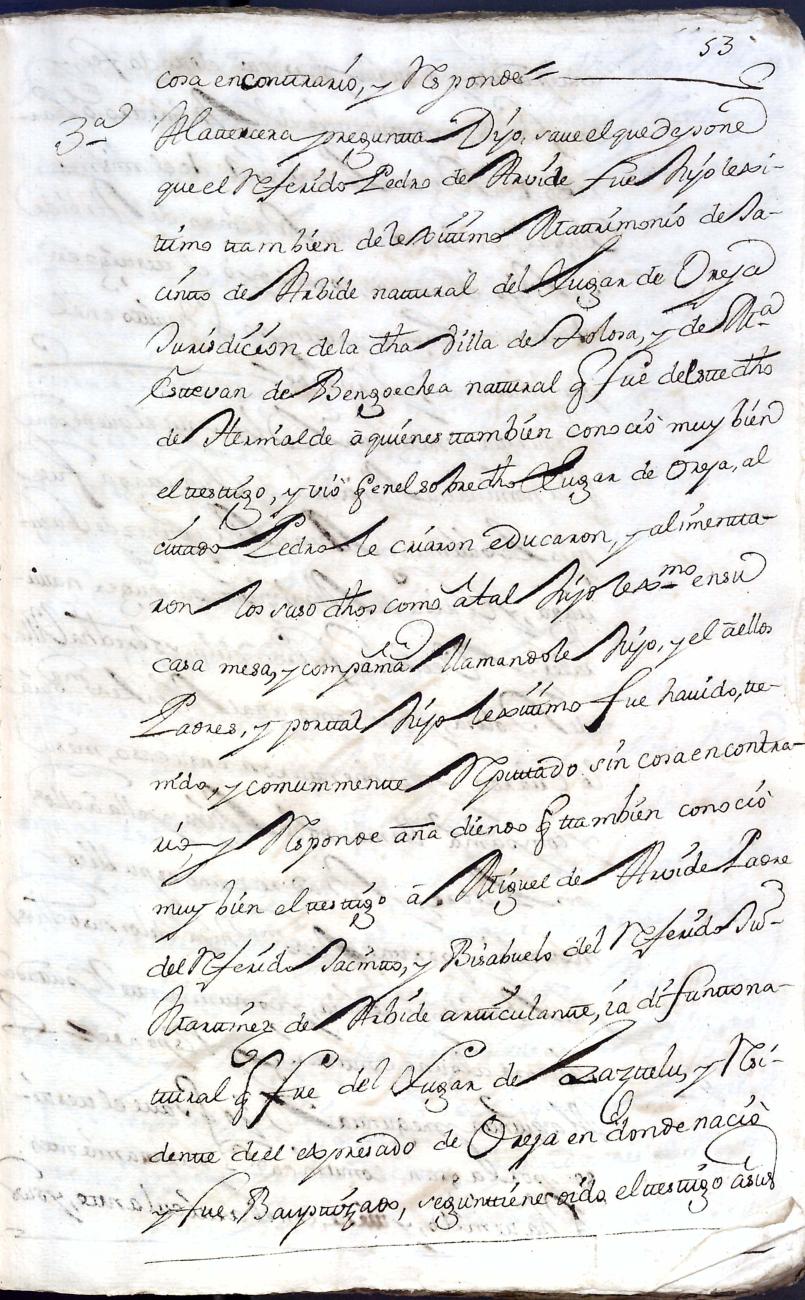 53
cosa encontrario, y Responde =
3ª Alatercera pregunta Dijo, save el que depone
que el Referido Pedro de Arvide fue hijo lexi-
timo tambien de lexitimo Matrimonio de Ja-
cinto de Arbide natural del Lugar de Oreja
Jurisdicion de la dha Villa de Tolosa, y de Mª
Estevan de Bengoechea natural q fue de este dho
de Hernialde â quienes tambien conociò muy bien
el testigo, y viò q en el sobre dho Lugar de Oreja, al
citado Pedro le criaron educaron, y alimenta-
ron los suso dhos como â tal hijo lexmo en su
casa mesa, y compamª llamandole hijo, y el â ellos
Padres, y por tal hijo lexitimo fue havido, te-
nido, y comunmente Reputado sin cosa en contra-
rio, y Responde añadiendo q tambien conociò
muy bien el testigo â Miguel de Arvide Padre
del Referido Jacinto, y Bisabuelo del Referido Juº
Martinez de Arbide articulante, ia difunto na-
tural q fue del Lugar de Bazttelu, y Resi-
dente de el expresado de Oreja en donde naciò
y fue Bauptizado, segun tiene oido el testigo â sus